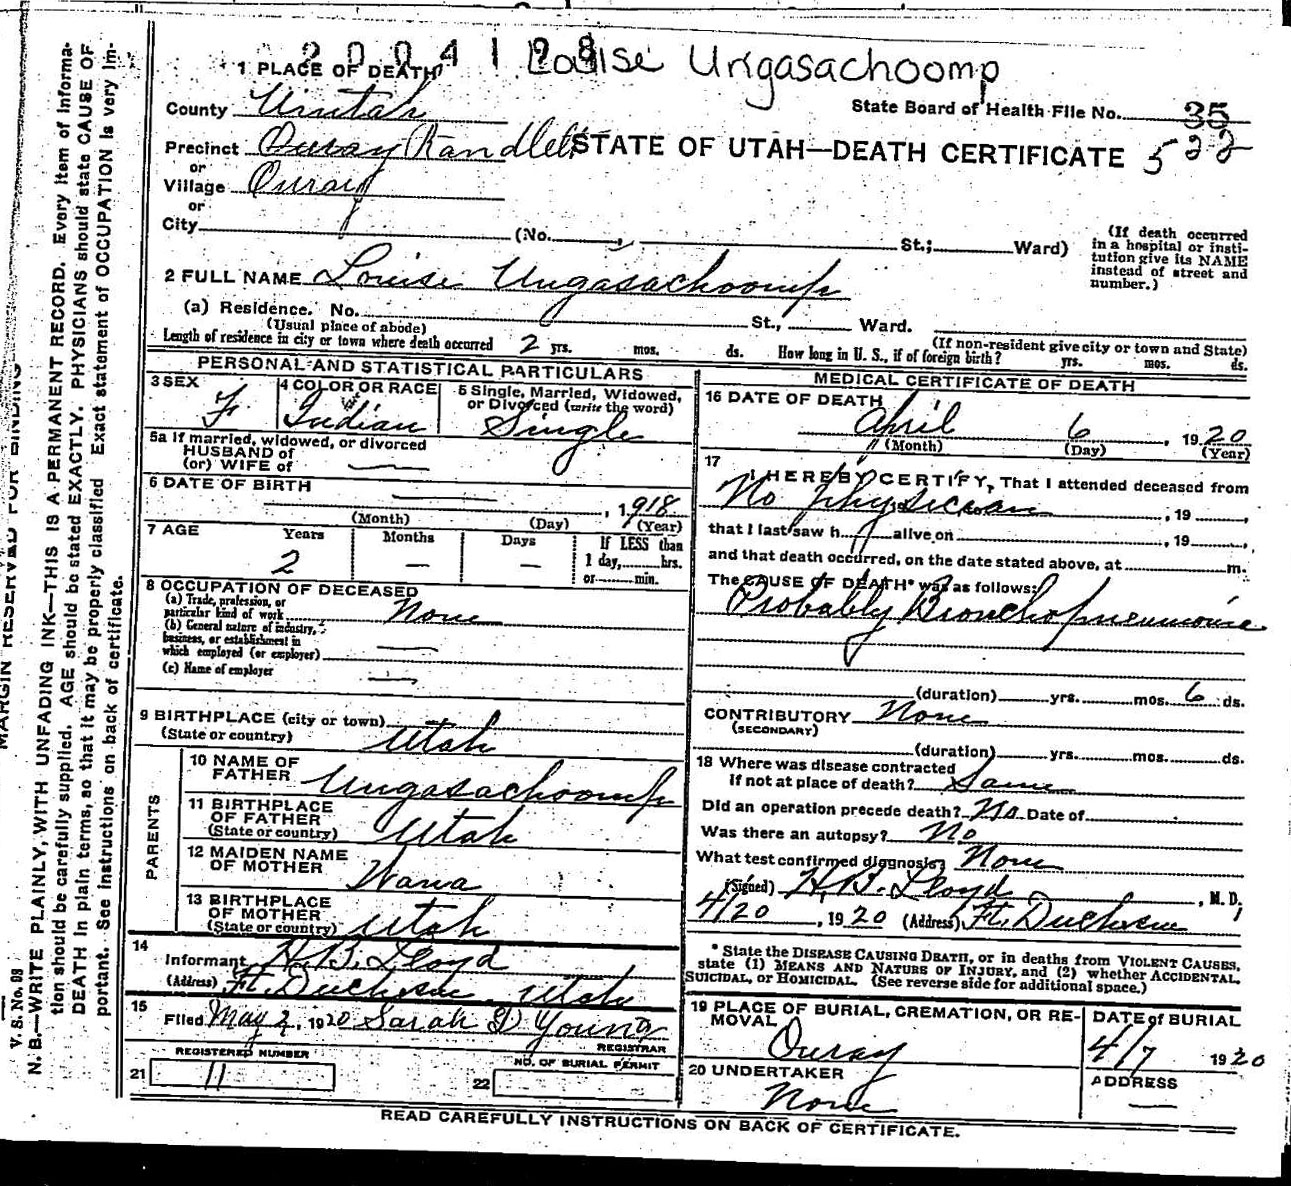 2004198 Louise Ungasachoomp
1 PLACE OF DEATH
State Board of Health File No. 35
County Uintah
522
Precinct Ouray Randlett STATE OF UTAH—DEATH CERTIFICATE
or
Village Ouray
or
City (No. , St.; Ward)
(If death occurred in a hospital or institution give its NAME instead of street and number.)
2 FULL NAME Louise Ungasachoomp
(a) Residence. No. St., Ward.
(Usual place of abode) (If non-resident give city or town and State)
Length of residence in city or town where death occurred 2 yrs. mos. ds. How long in U. S., if of foreign birth? yrs. mos. ds.
PERSONAL AND STATISTICAL PARTICULARS
3 SEX F
4 COLOR OR RACE Indian
5 Single, Married, Widowed, or Divorced (write the word) Single
5a If married, widowed, or divorced
HUSBAND of
(or) WIFE of —
6 DATE OF BIRTH — , 1918
(Month) (Day) (Year)
7 AGE Years Months Days If LESS than
2 — — 1 day, hrs.
or min.
8 OCCUPATION OF DECEASED
(a) Trade, profession, or
particular kind of work None
(b) General nature of industry,
business, or establishment in
which employed (or employer) —
(c) Name of employer —
9 BIRTHPLACE (city or town)
(State or country) Utah
PARENTS
10 NAME OF
FATHER Ungasachoomp
11 BIRTHPLACE
OF FATHER
(State or country) Utah
12 MAIDEN NAME
OF MOTHER Wana
13 BIRTHPLACE
OF MOTHER
(State or country) Utah
14
Informant H. B. Lloyd
(Address) Ft. Duchesne Utah
15
Filed May 2, 1920 Sarah D Young
REGISTRAR
REGISTERED NUMBER
21 11
NO. OF BURIAL PERMIT
22
MEDICAL CERTIFICATE OF DEATH
16 DATE OF DEATH
April 6, 1920
(Month) (Day) (Year)
17
I HEREBY CERTIFY, That I attended deceased from
No physician , 19 ,
that I last saw h alive on , 19 ,
and that death occurred, on the date stated above, at m.
The CAUSE OF DEATH* was as follows:
Probably Bronchopneumonia
(duration) yrs. mos. 6 ds.
CONTRIBUTORY None
(SECONDARY)
(duration) yrs. mos. ds.
18 Where was disease contracted
If not at place of death? Same
Did an operation precede death? No Date of
Was there an autopsy? No
What test confirmed diagnosis? None
(Signed) H. B. Lloyd , M. D.
4/20 , 1920 (Address) Ft. Duchesne
* State the DISEASE CAUSING DEATH, or in deaths from VIOLENT CAUSES,
state (1) MEANS AND NATURE OF INJURY, and (2) whether ACCIDENTAL,
SUICIDAL, or HOMICIDAL. (See reverse side for additional space.)
19 PLACE OF BURIAL, CREMATION, OR RE-
MOVAL Ouray
DATE of BURIAL
4/7 1920
20 UNDERTAKER
None
ADDRESS
—
READ CAREFULLY INSTRUCTIONS ON BACK OF CERTIFICATE.
MARGIN RESERVED FOR BINDING
V. S. No. 98
N. B.—WRITE PLAINLY, WITH UNFADING INK—THIS IS A PERMANENT RECORD. Every item of informa-
tion should be carefully supplied. AGE should be stated EXACTLY. PHYSICIANS should state CAUSE OF
DEATH in plain terms, so that it may be properly classified. Exact statement of OCCUPATION is very im-
portant. See instructions on back of certificate.